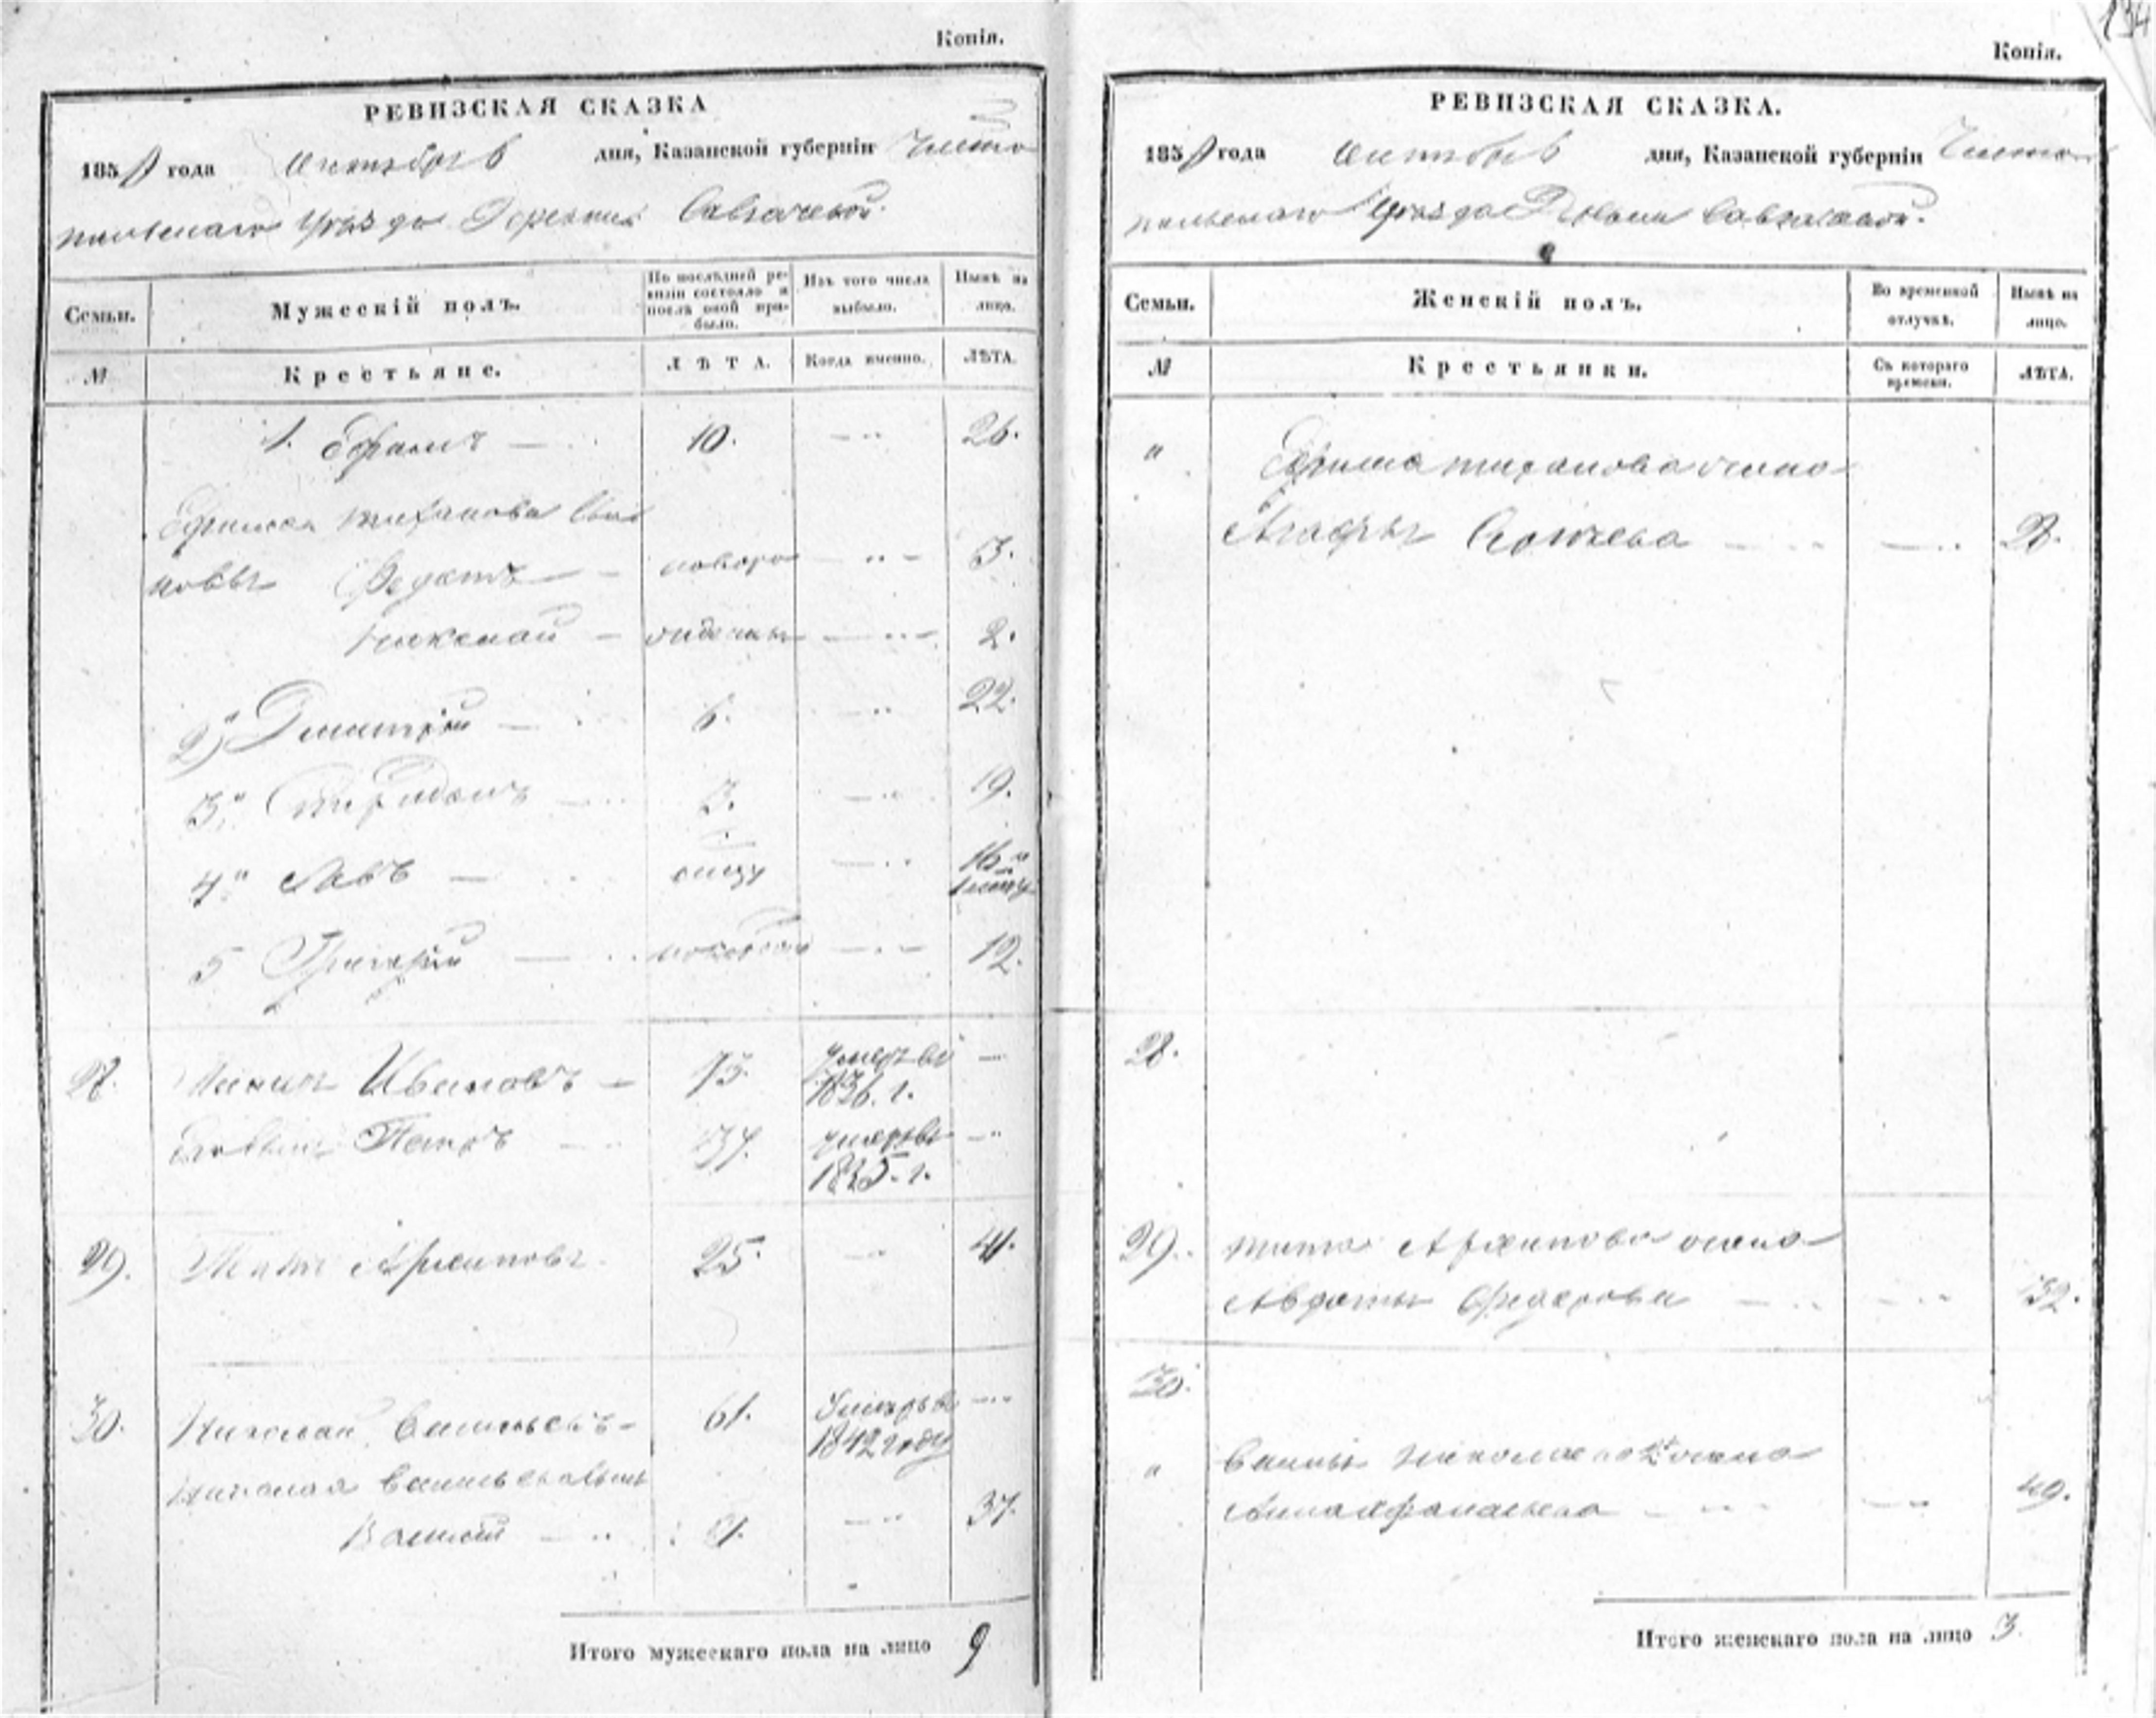 134
Копія.
РЕВИЗСКАЯ СКАЗКА
1850 года Октября дня, Казанской губерніи Чисто
польскаго Уѣзда Деревни
Семьи. Мужескій полъ. По послѣдней ревизіи состояло и послѣ оной прибыло. Изъ того числа выбыло. Нынѣ на лицо.
№ Крестьяне. ЛѢТА. Когда именно. ЛѢТА.
1. Ефимъ 10. 26.
Ефима Тихонова Сыно
вьи Федотъ новоро 3.
Николай 2.
2) Дмитрій 6. 22.
3" Спиридонъ 3. 19.
4" Савъ 16"
5 Григорій 12.
28. Иванъ Ивановъ 75 умеръ въ 1836. г.
Петръ 37. умеръ въ 1835. г.
29. Титъ Архиповъ 25. 41.
30. Николай Васильевъ 61. Умеръ въ 1842 году
Николая Васильева сынъ
Василій 21. 37.
Итого мужескаго пола на лицо 9
Копія.
РЕВИЗСКАЯ СКАЗКА.
1850 года Октября дня, Казанской губерніи Чисто
польскаго Уѣзда
Семьи. Женскій полъ. Во временной отлучкѣ. Нынѣ на лицо.
№ Крестьянки. Съ котораго времени. ЛѢТА.
" Ефима Тихонова жена
28.
28.
29. Тита Архипова жена
Авдотья Федорова 32.
30.
" Василья Николаева жена
Анна Афанасьева 49.
Итого женскаго пола на лицо 3.